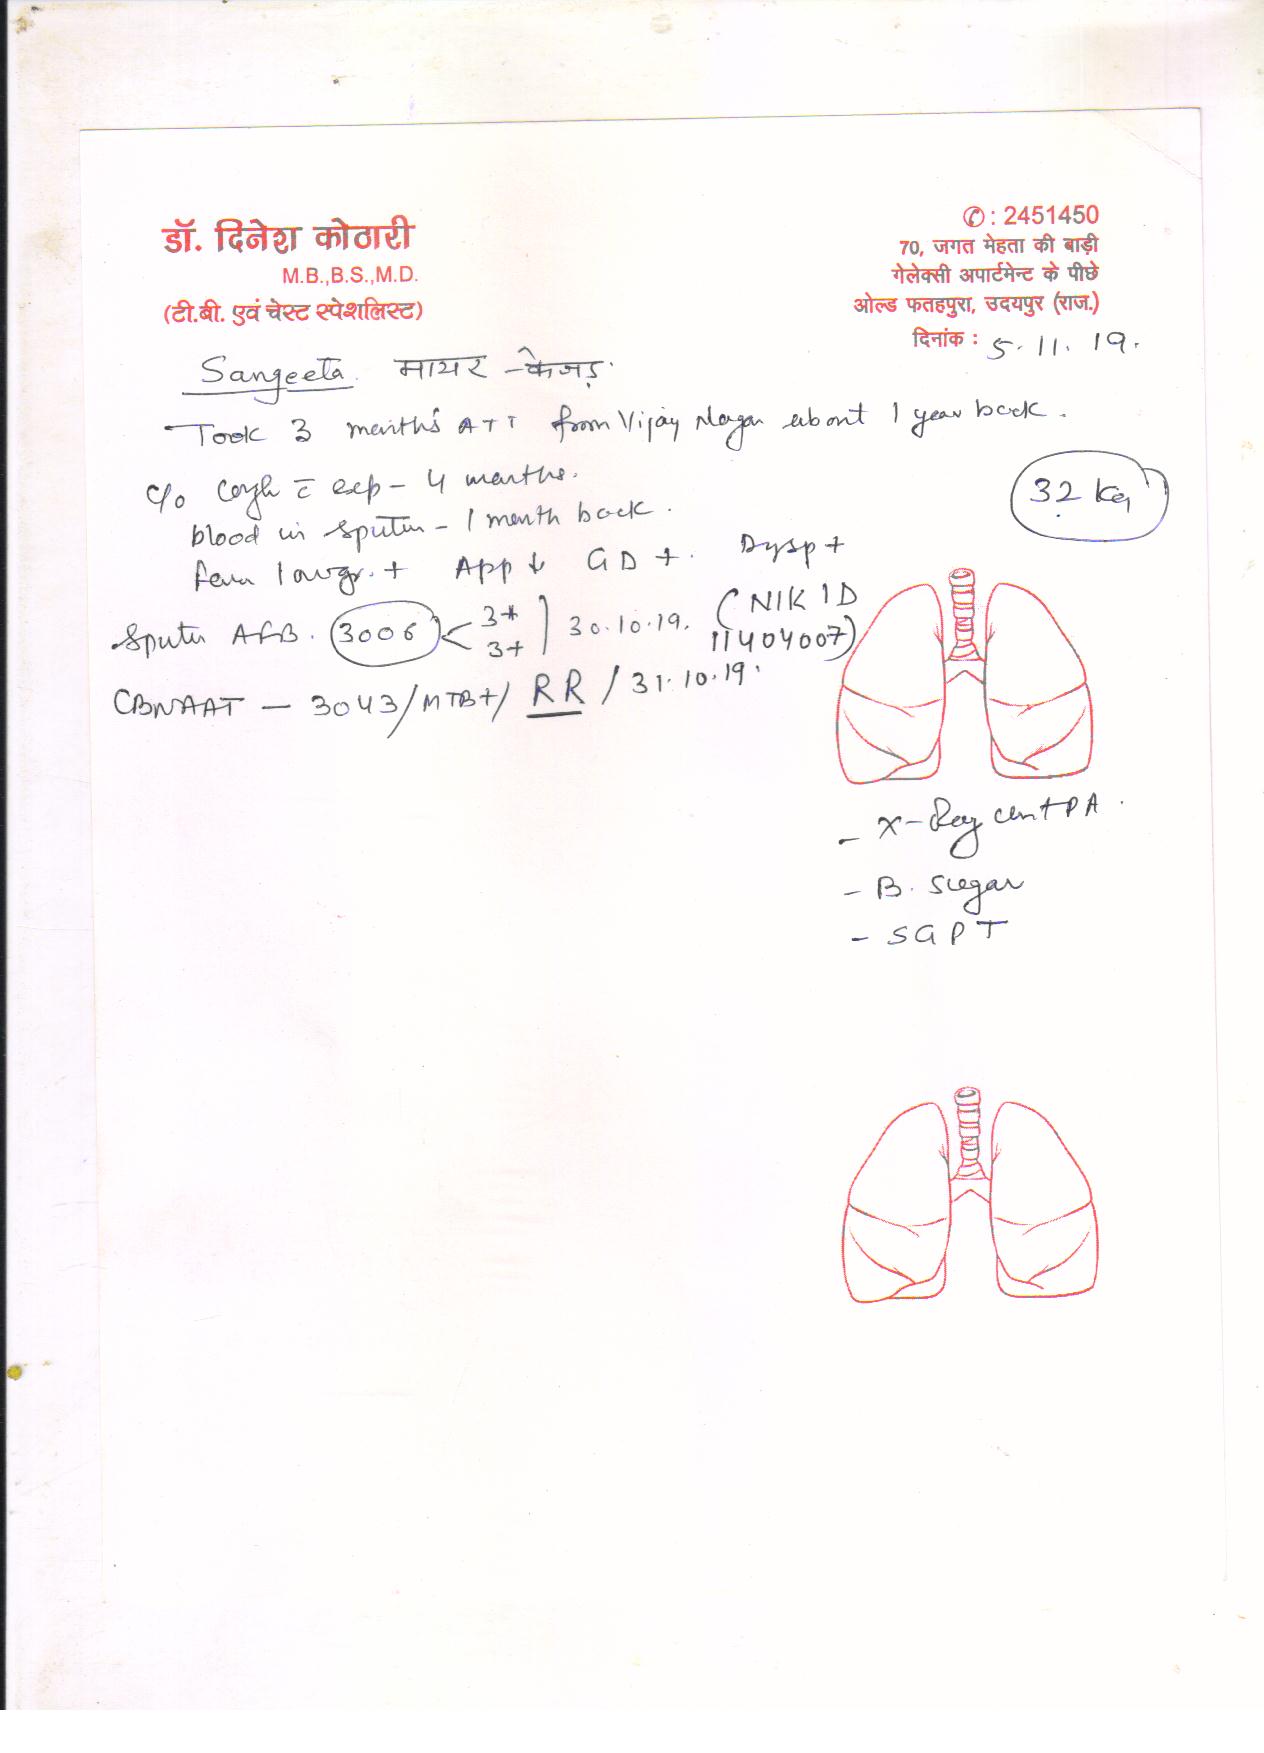 डॉ. दिनेश कोठारी
M.B.,B.S.,M.D.
(टी.बी. एवं चेस्ट स्पेशलिस्ट)
✆: 2451450
70, जगत मेहता की बाड़ी
गेलेक्सी अपार्टमेन्ट के पीछे
ओल्ड फतहपुरा, उदयपुर (राज.)
दिनांक : 5.11.19.
Sangeeta
Took 3 months ATT from Vijay Nagar about 1 year back.
C/o Cough c̄ exp - 4 months.
blood in sputum - 1 month back.
32 Kg
fever low gr. + App ↓ GD +. Dysp +
Sputum AFB. 3006 < 3+ 3+ ] 30.10.19. (NIK ID 11404007)
CBNAAT - 3043/MTB+/ RR / 31.10.19.
- X-Ray chest PA.
- B. Sugar
- SGPT